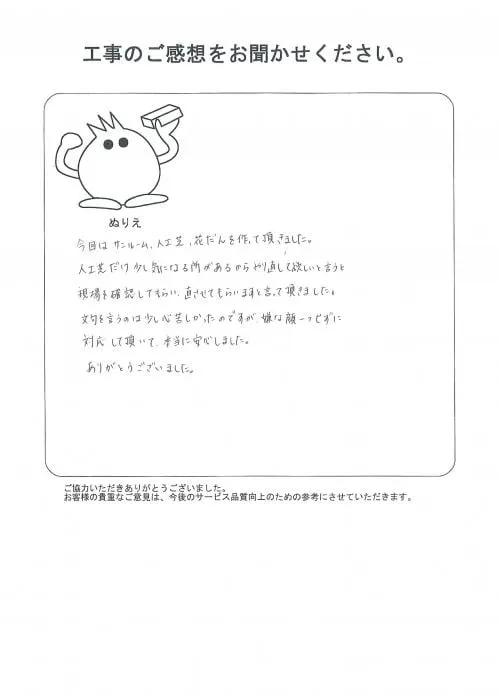 工事のご感想をお聞かせください。
ぬりえ
今回はサンルーム、人工芝、花だんを作って頂きました。
人工芝だけ少し気になる所があるからやり直して欲しいと言うと
現場を確認してもらい、直させてもらいますと言って頂きました。
文句を言うのは少し心苦しかったのですが、嫌な顔一つせずに
対応して頂いて、本当に安心しました。
ありがとうございました。
ご協力いただきありがとうございました。
お客様の貴重なご意見は、今後のサービス品質向上のための参考にさせていただきます。